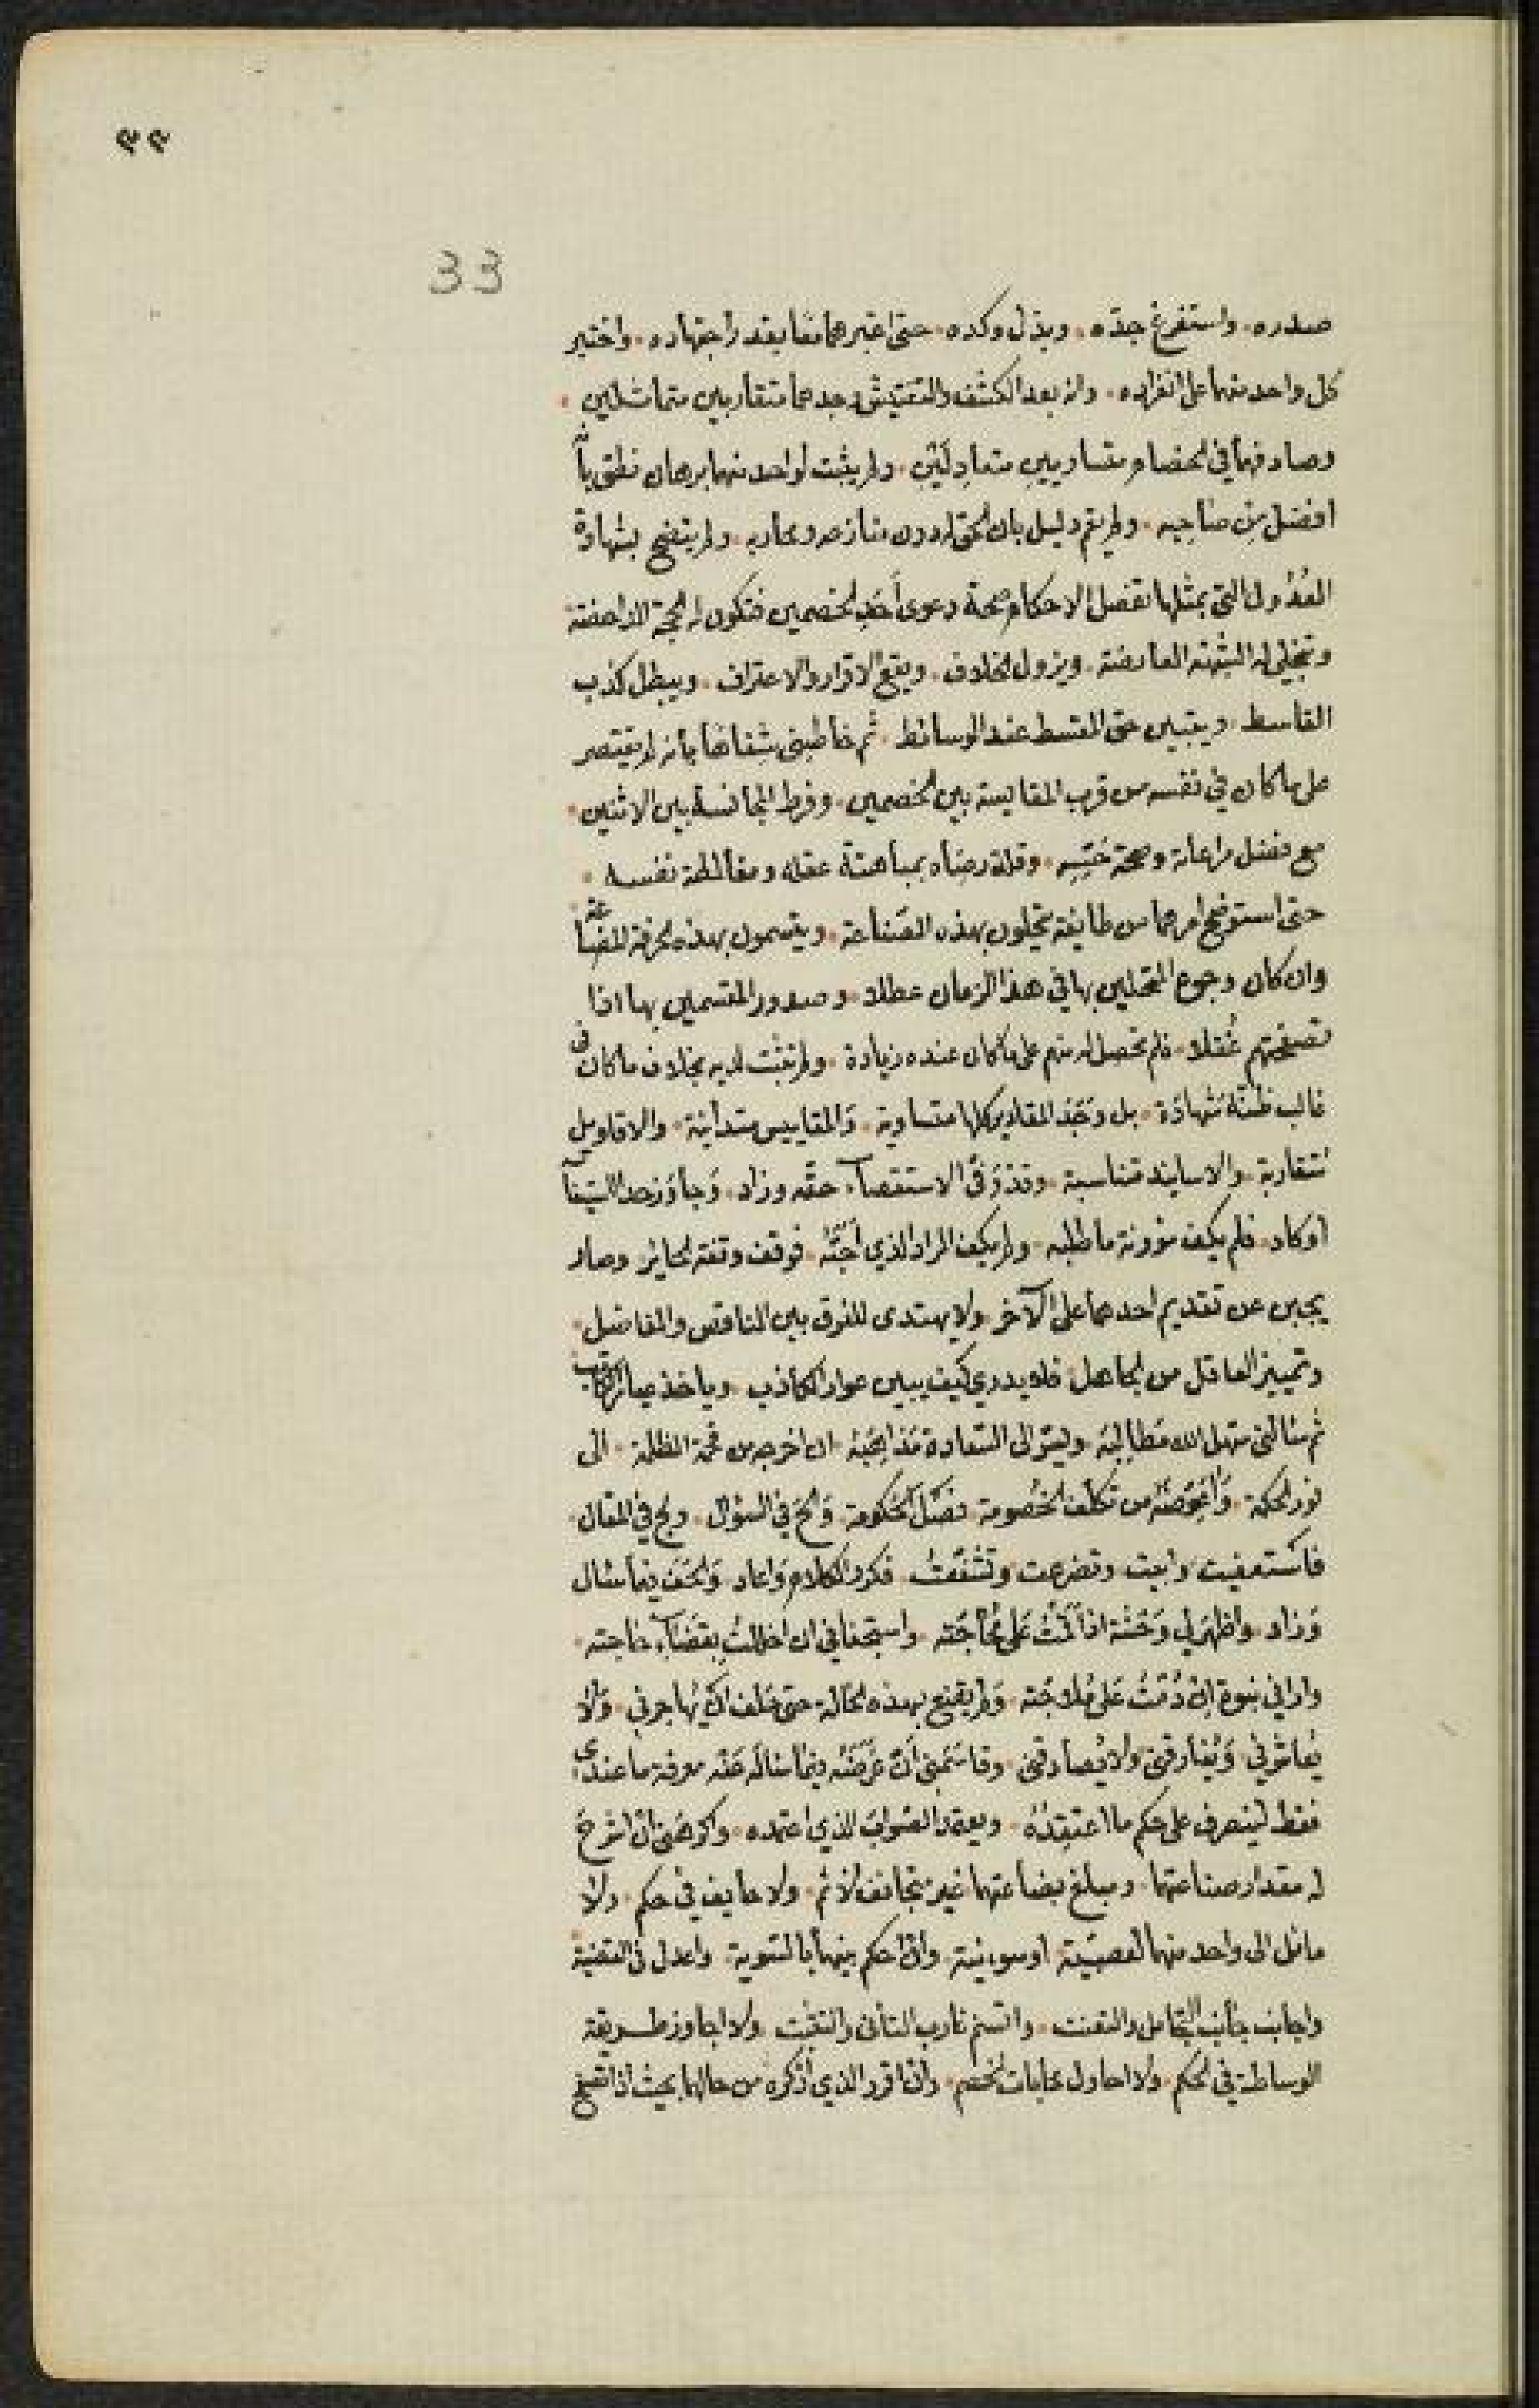 ٣٣
33
صدره · واستفرغ جدّه · وبذل وكده · حتى اعتبرهما معا بقدر اجتهاده · واختبر
كل واحد منهما على انفراده · وانه بعد الكشف والتفتيش وجدهما متقاربين متماثلين ·
وصادفهما في الحضام متساويين متعادلَيْن · ولم يثبت لواحد منهما برهان نطق بأنه
افضل مِن صاحبه · ولم يقم دليل بان الحق له دون منازعه ومحاربه · ولم يتضح بشهادة
العُدُول التي بمثلها تفصل الاحكام صحة دعوى أحَدِ الخصمين فتكون له الحجة الداحضة
وتنجلي له الشبهة العارضة · ويزول الخلاف · ويقع الاقرار والاعتراف · ويبطل كذب
القاسط · ويتبين حق المقسط عند الوسائط · ثم خاطبني شِفاهًا بأنه لم يقتصر
على ما كان في نفسه من قرب المقايسة بين الخصمين · وفرط المجانسة بين الاثنين ·
مع فضل مراعاته وصحة · وقلة رضاه بمباهتة عقله ومغالطة نفسه ·
حتى استوضح امرهما من طايفة يتحلون بهذه الصّناعة · ويتسمون بهذه الحرفة المضاعة
وان كان وجوع المتحلين بها في هذا الزمان عطلا · وصدور المتسمين بها اذا
تصفحتهم غُفلا · فلم تحصل له منهم على ما كان عنده زيادة · ولم تثبت لديه بخلاف ما كان في
غالب ظنّه شهادَة · بل وَجَد المقادير كلها متساوية · وَالمقاييس متدانية · والاقاويل
متقاربة · والاسانيد متناسبة · وقد وَفّى الاستقصآء حقّه وزاد · وَجاوَز حد الاستيفآ
اوكاد · فلم يكف مؤونة ما طلبه · ولم يكف المراد الذي اَحبّهُ · فوقف وقفة الحاير وصار
يجبن عن تقديم احدهما على الآخر · ولا يهتدى للفرق بين الناقص والفاضل ·
وتمييز العاقل من الجاهل · فلا يدري كيف يبين عوار الكاذب · وياخذ عيار
ثم سالني سهل الله مَطالبَه · ويسّر الى السّعادة مَذاهِبَهُ · ان اخرجه من فحمة الظلمة · الى
نور الحكمة · من تكلّف الخُصومة فصَلَ الحُكومة · وَالحّ في السؤال · ولج في المقال ·
فاستعفيت وابيت وتضرعت وتشفّعتُ · فكرر الكلام وَاعاد · وَالحَف فيما سال
وَزاد · واظهر لي وَحْشَة اذا على مُحاجّته · واستجفاني ان اخللتُ بقضآءِ حاجته ·
واراني نبوة اِنْ دُمْتُ عَلى مُلاجّته · وَلم يقنع بهذه الحالة حتى حَلف انْ يُهاجرني · وَلا
يُعاشرني · وَيُفارقني ولا يُصادقني · وقاسَمني اَنّ غَرَضَهُ فيما سَالَهُ عَنْه معرفة ما عندي
فقط لينصرف على حكم ما اعتقدُهُ · ويعتمد الصّوابَ الذي اعتمده · انْ اشرحَ
له مقدار صناعتهما · ومبلغ بضاعتهما غير متجانف لاثم · ولا حايف في حكم · ولا
مائل الى واحد منهما لعصبيّة · اوسوء نية · وان احكم بينهما بالسّوية · واعدل في القضية
واجانب جانب التحامل والتعنت · وا التأنى والتثبّت · ولا اجاوز طريقة
الوساطة في الحكم · ولا احاول محابات الخصم · وان اقرر الذي اذكره من حالهما بحيث اذا